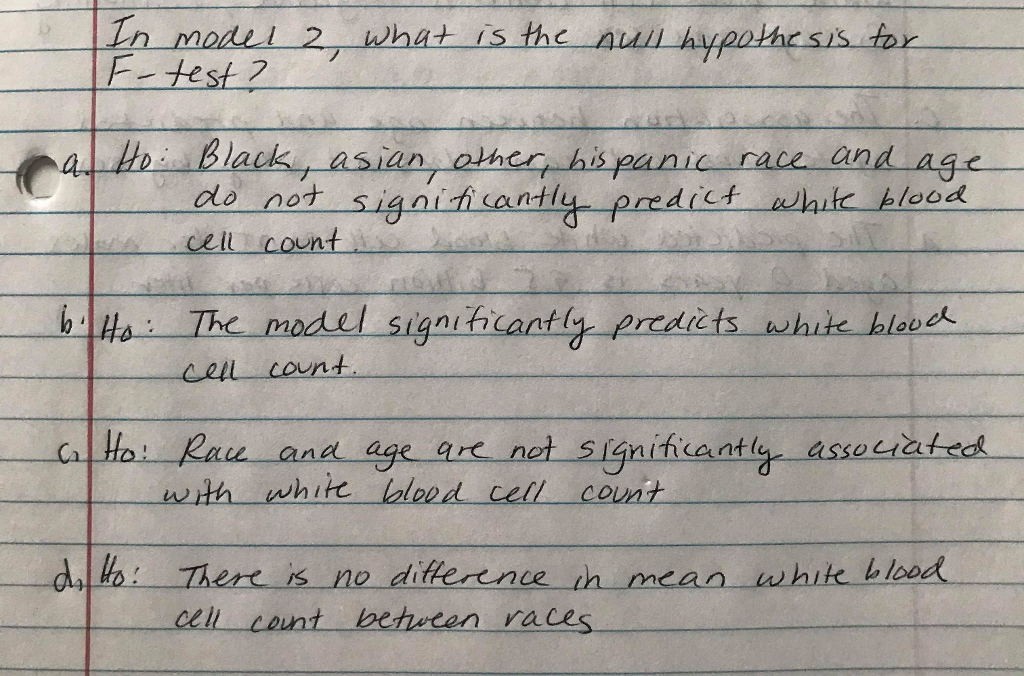 In model 2, what is the null hypothesis for
F-test?
a. Ho: Black, asian, other, hispanic race and age
do not significantly predict white blood
cell count.
b. Ho: The model significantly predicts white blood
cell count.
c. Ho: Race and age are not significantly associated
with white blood cell count
d. Ho: There is no difference in mean white blood
cell count between races